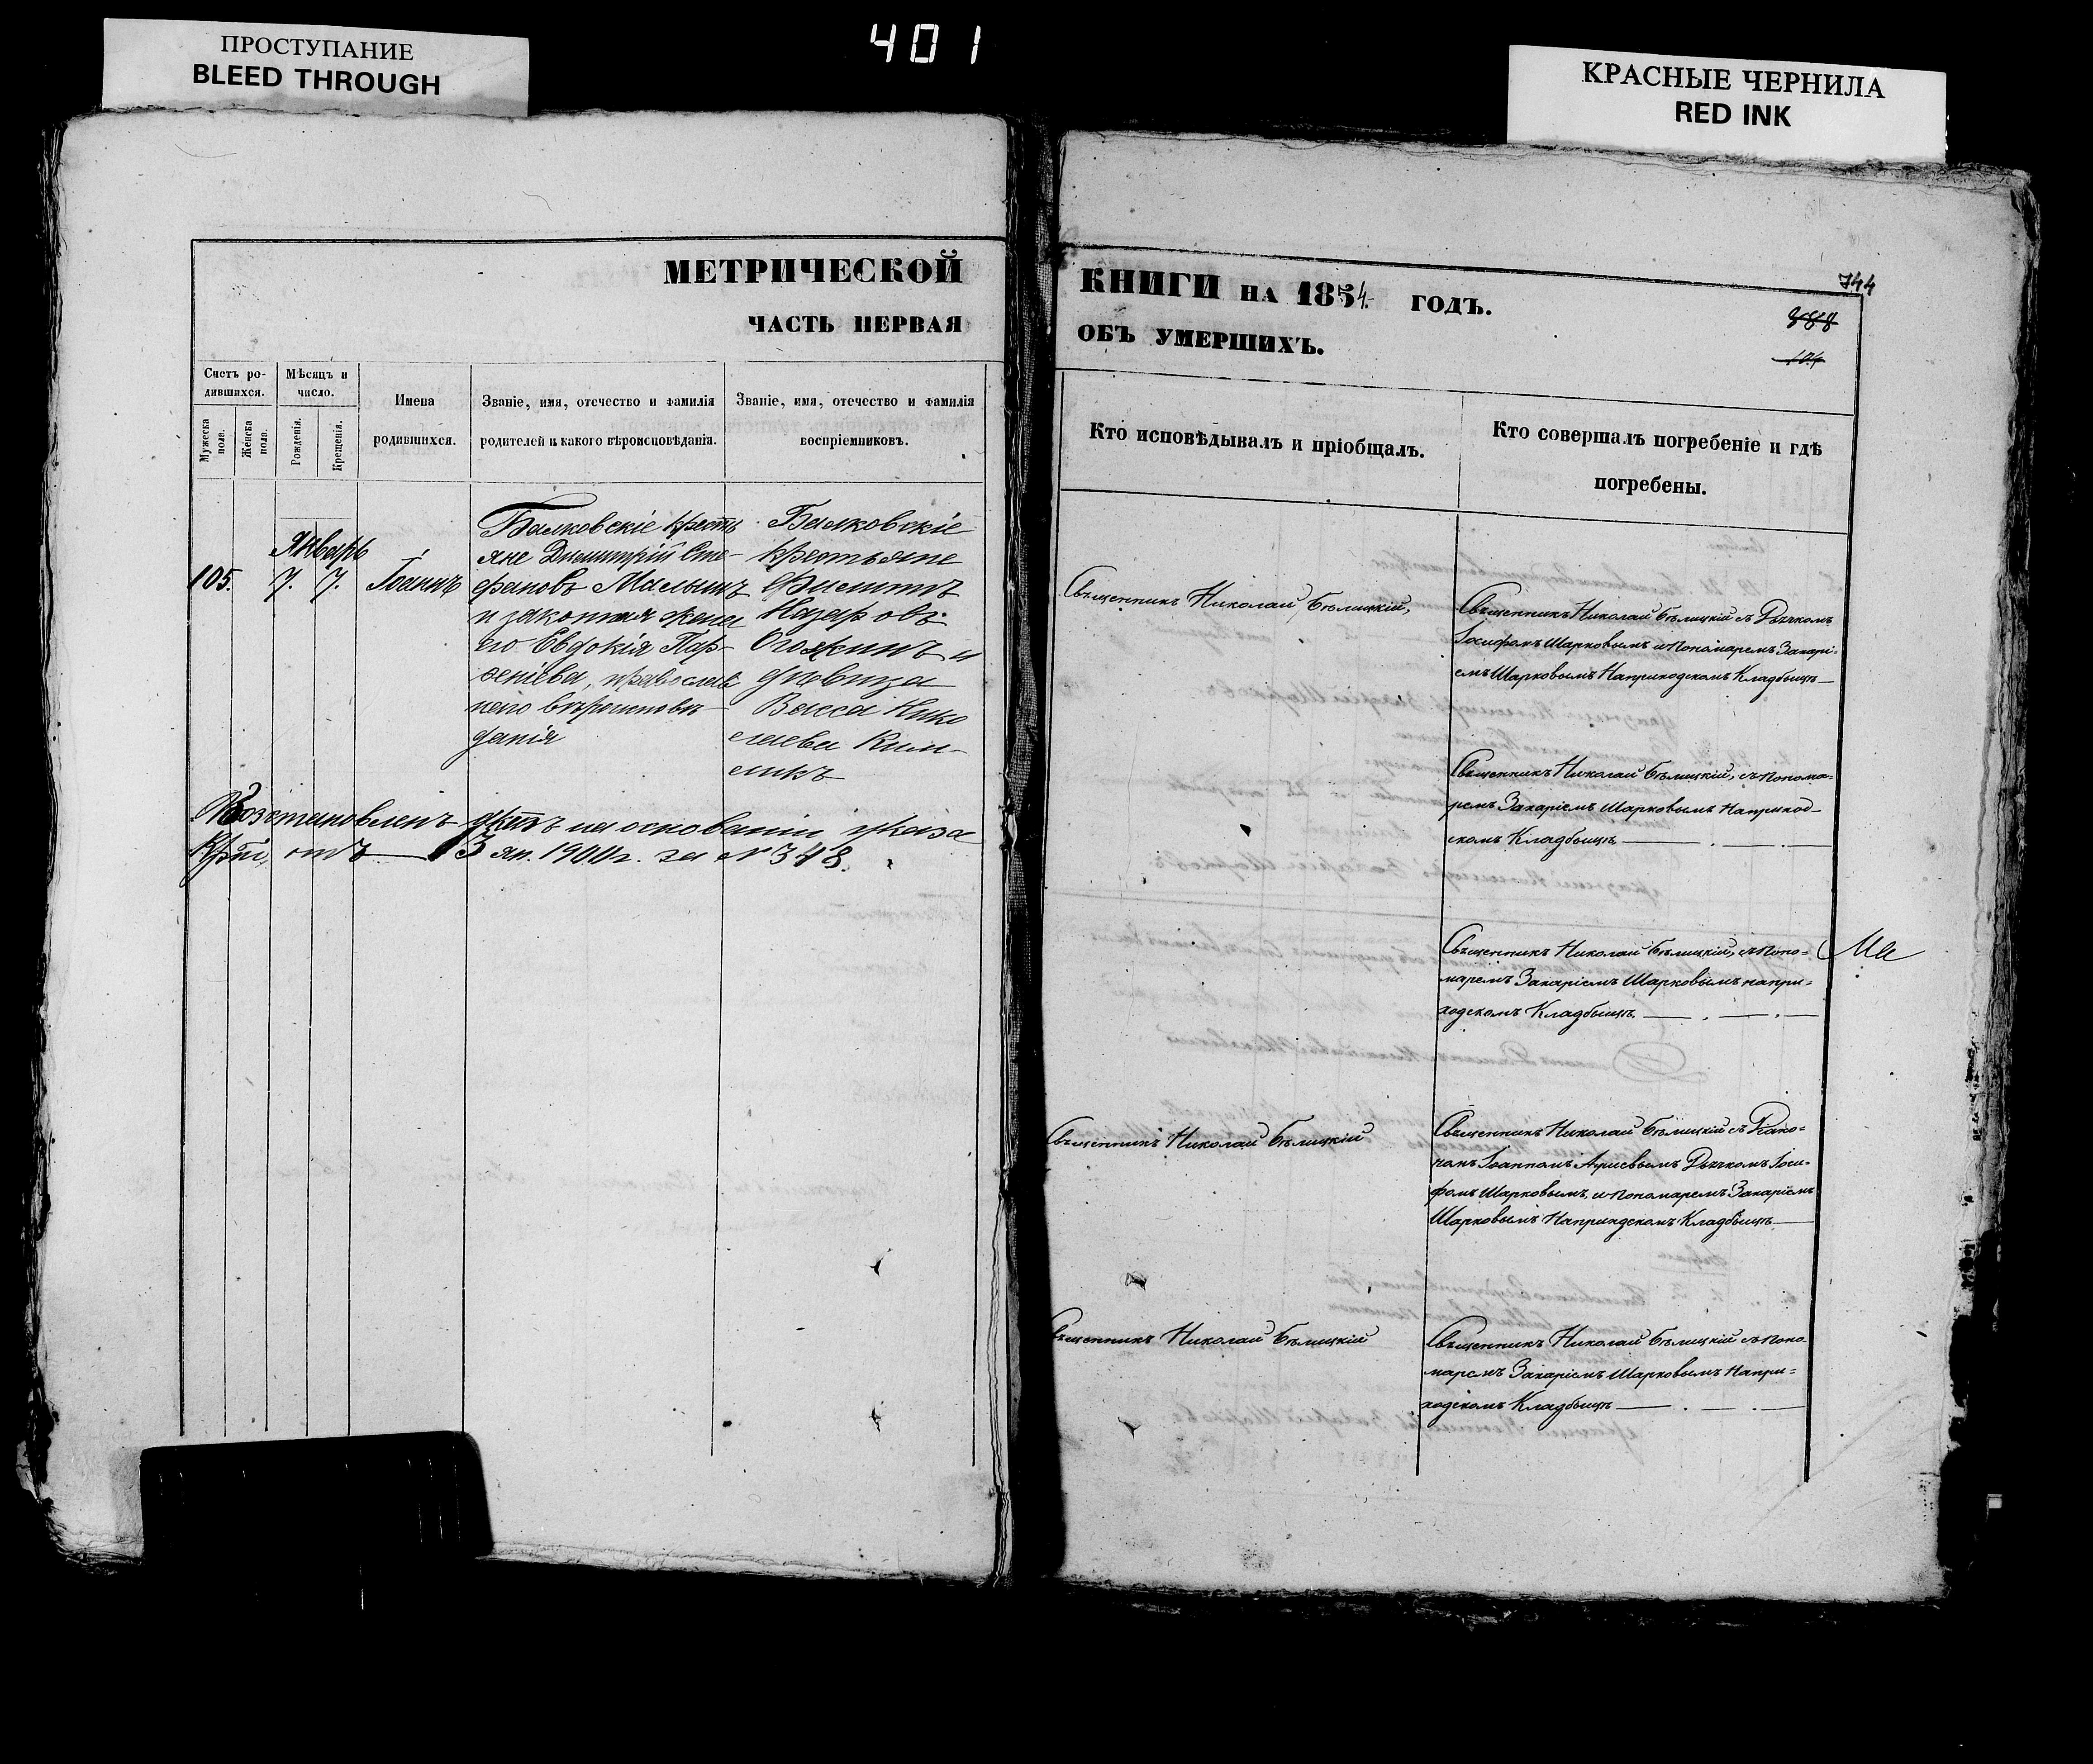 ПРОСТУПАНИЕ
BLEED THROUGH
401
КРАСНЫЕ ЧЕРНИЛА
RED INK
МЕТРИЧЕСКОЙ
ЧАСТЬ ПЕРВАЯ
Счетъ ро-
дившихся.
Мѣсяцъ и
число.
Мужеска
пола.
Женска
пола.
Рожденія.
Крещенія.
Имена
родившихся.
Званіе, имя, отечество и фамилія
родителей и какого вѣроисповѣданія.
Званіе, имя, отечество и фамилія
воспріемниковъ.
Январь
105. 7. 7. Іоаннъ
Балковскіе кресть
яне Димитрій Сте-
фановъ Малышъ
и законная жена
его Евдокія Пар-
фенiева, православ
наго вѣроисповѣ
данія
Балковскіе
крестьяне
Филиппъ
Назаровъ
Огожинъ и
дѣвица
Васса Нико
лаева Ким-
ликъ
Возстановленъ актъ на основаніи указа
от 13 ян. 1900 г. за № 348.
КНИГИ НА 1854. ГОДЪ.
ОБЪ УМЕРШИХЪ.
744
388
104
Кто исповѣдывалъ и пріобщалъ.
Кто совершалъ погребеніе и гдѣ
погребены.
Священникъ Николай Бѣлицкій,
Священникъ Николай Бѣлицкій съ Дьячкомъ
Іосифомъ Шарковымъ и Пономаремъ Захарі-
емъ Шарковымъ На приходскомъ Кладбищѣ
Священникъ Николай Бѣлицкій, съ Понома-
ремъ Захаріемъ Шарковымъ На приход-
скомъ Кладбищѣ
Священникъ Николай Бѣлицкій, съ Поно-
маремъ Захаріемъ Шарковымъ на при-
ходскомъ Кладбищѣ
Священникъ Николай Бѣлицкій
Священникъ Николай Бѣлицкій съ Діако-
номъ Іоанномъ Дьячкомъ Іоси-
фомъ Шарковымъ, и Пономаремъ Захаріемъ
Шарковымъ На приходскомъ Кладбищѣ
Священникъ Николай Бѣлицкій
Священникъ Николай Бѣлицкій съ Поно
маремъ Захаріемъ Шарковымъ На при-
ходскомъ Кладбищѣ